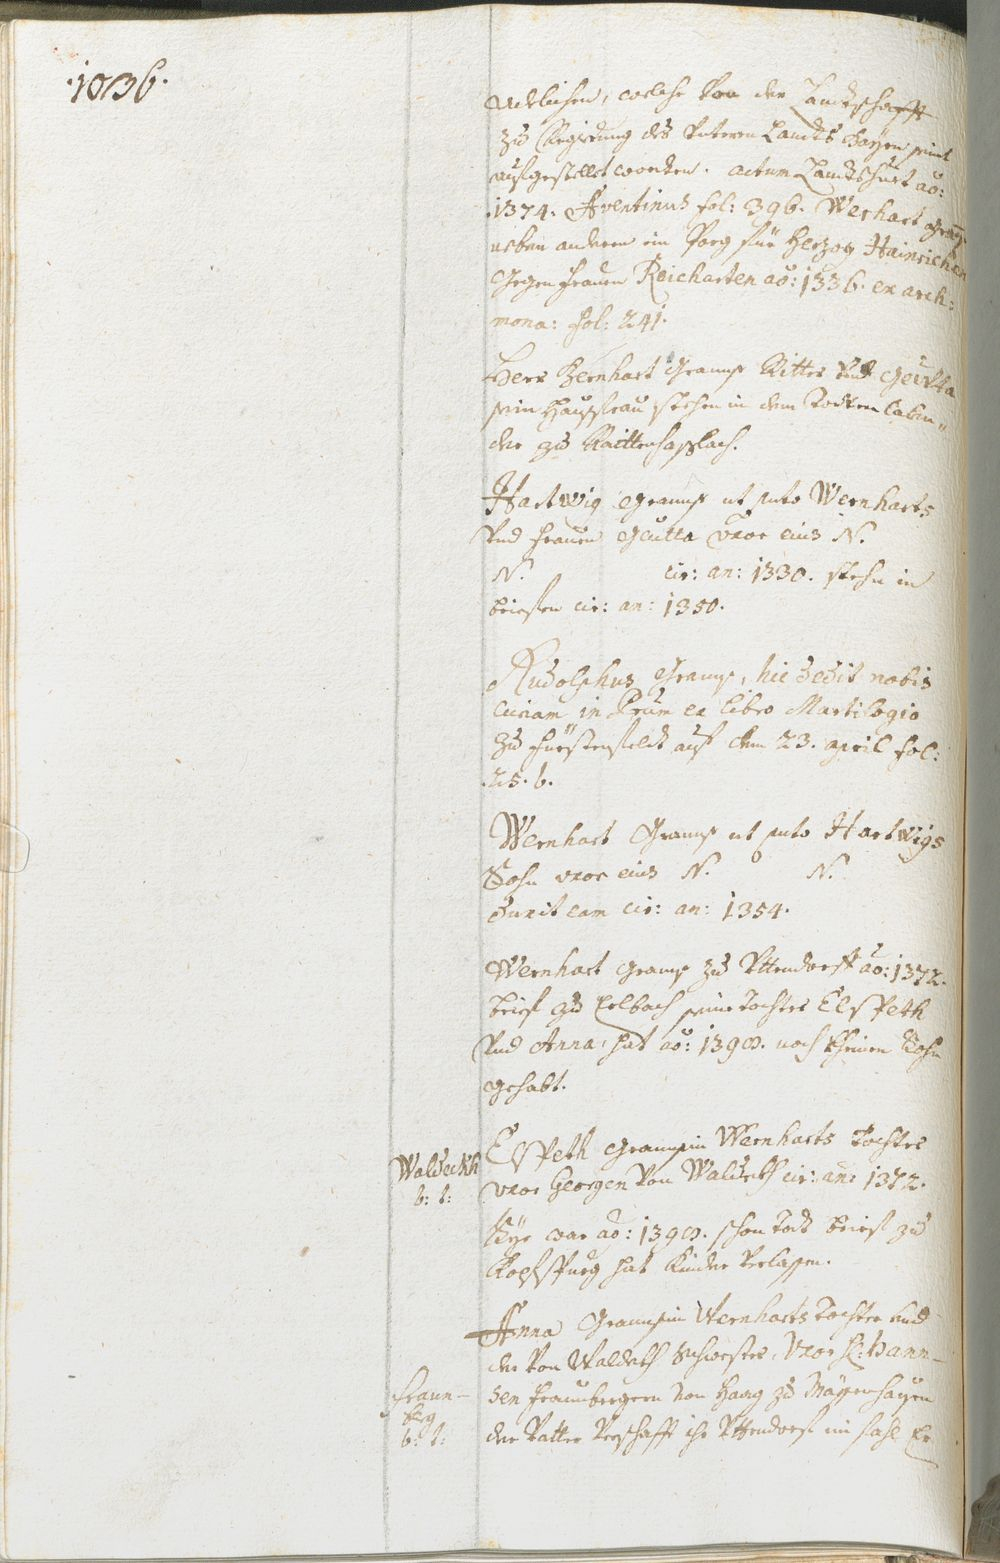 ·1036·
Adelichen, welche von der Landtschafft
zu Regirung des Untern Landts Bayrn seint
aufgestellet worden. actum Landtshuet ao:
1374. Aventinus fol: 396. Werhart Grans
neben andern ein Porg für Herzog Hainrichen
gegen frauen Reicharten ao: 1336. ex arch:
mona: fol: 241.
Herr Bernhart Grans Ritter und Geutta
sein Haußfrau stehen in dem Todten Calen„
der zu Raittenhaßlach.
Hartwig Grans ut puto Wernharts
und frauen Geutta uxor eius N.
N. cir: an: 1330. stehn in
briefen cir: an: 1350.
Rudolphus Grans, hic dedit nobis
curiam in Prun ex libro Martilogio
zu Fürstenfeldt auf dem 23. april fol:
25. b.
Wernhart Grans ut puto Hartwigs
Sohn uxor eius N. N.
Duxit eam cir: an: 1354.
Wernhart Grans zu Uttendorff ao: 1372.
brief zu Erlbach seine Tochter Elspeth
und Anna, hat ao: 1398. noch kheinen Sohn
gehabt.
Waldeckh
b: t:
Elspeth Gransin Wernharts Tochter
uxor Georgen von Waldeckh cir: an: 1372.
Sye war ao: 1398. schon Todt brief zu
hat Kinder verlassen.
Anna Gransin Wernharts Tochter und
der von Waldeckh Schwester, Uxor H: Hann-
Fraun-
berg
b: t:
sen Fraunbergern von Haag zu
der Vatter verschafft ihr Uttendorf im fahl Er